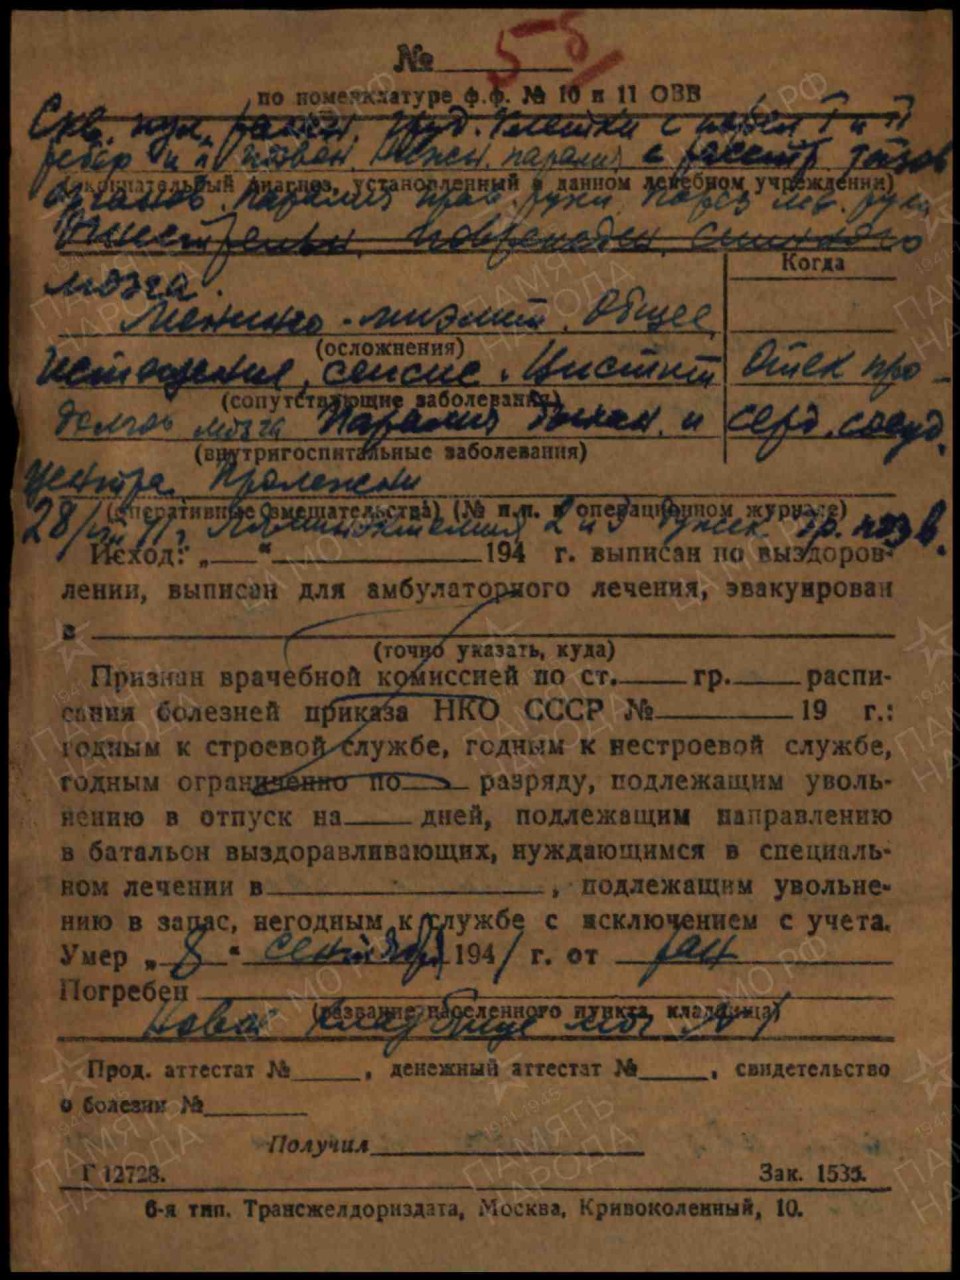 № 58
по номенклатуре ф.ф. № 10 и 11 ОВВ
Скв. пул. ранен. груд. клетки с повреж I и II
ребер и позвон. Нижн. паралич с расстр. тазов
(окончательный диагноз, установленный в данном лечебном учреждении)
органов. Паралич прав. руки Парез лев. руки
Огнестрельн. поврежден. спинного
Когда
мозга.
Менинго-миэлит. Общее
(осложнения)
истощение, сепсис. Цистит Отек про-
(сопутствующие заболевания)
долгов мозга Паралич дыхан. и серд. сосуд.
(внутригоспитальные заболевания)
центра. Пролежни
(оперативные вмешательства) (№ и.п. в операционном журнале)
28/VIII 41 г. Ляминэктомия 2 и 3 гр. позв.
Исход: „ “ 194 г. выписан по выздоров-
лении, выписан для амбулаторного лечения, эвакуирован
в
(точно указать, куда)
Признан врачебной комиссией по ст. гр. распи-
сания болезней приказа НКО СССР № 19 г.:
годным к строевой службе, годным к нестроевой службе,
годным ограниченно по разряду, подлежащим уволь-
нению в отпуск на дней, подлежащим направлению
в батальон выздоравливающих, нуждающимся в специаль-
ном лечении в , подлежащим увольне-
нию в запас, негодным к службе с исключением с учета.
Умер „ 8 “ сентября 1941 г. от ран
Погребен
(название населенного пункта, кладбища)
Новое кладбище мог
Прод. аттестат № , денежный аттестат № , свидетельство
о болезни №
Получил
Г 12728. Зак. 1535.
6-я тип. Трансжелдориздата, Москва, Кривоколенный, 10.
ПАМЯТЬ НАРОДА
1941-1945
ЦА МО РФ